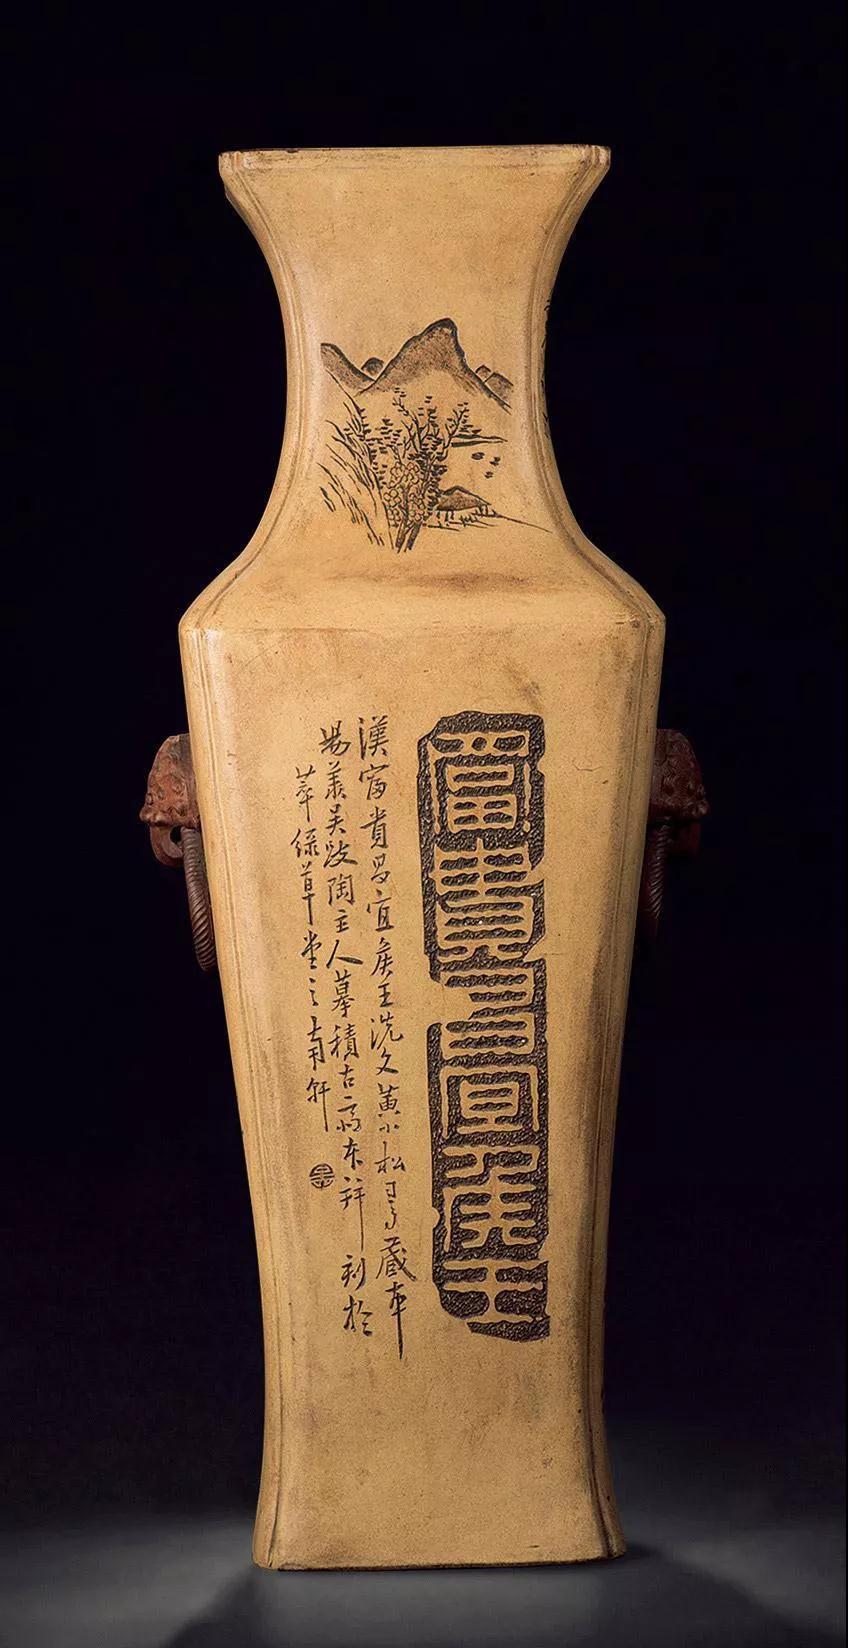 富貴昌宜侯王
漢富貴昌宜侯王洗文黃小松司馬藏本
陽羨吳跂陶主人摹積古齋本并刻於
萃綠草堂之南軒